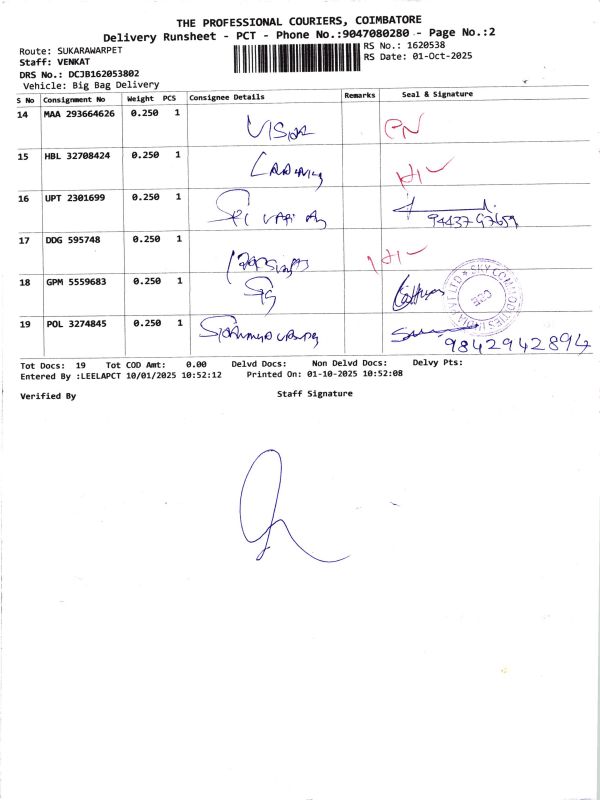 THE PROFESSIONAL COURIERS, COIMBATORE
Delivery Runsheet - PCT - Phone No.:9047080280 - Page No.:2
Route: SUKARAWARPET
RS No.: 1620538
Staff: VENKAT
RS Date: 01-Oct-2025
DRS No.: DCJB162053802
Vehicle: Big Bag Delivery
S No Consignment No Weight PCS Consignee Details Remarks Seal & Signature
14 MAA 293664626 0.250 1
15 HBL 32708424 0.250 1
16 UPT 2301699 0.250 1 Sri
17 DDG 595748 0.250 1
18 GPM 5559683 0.250 1
19 POL 3274845 0.250 1
9842942894
Tot Docs: 19 Tot COD Amt: 0.00 Delvd Docs: Non Delvd Docs: Delvy Pts:
Entered By :LEELAPCT 10/01/2025 10:52:12 Printed On: 01-10-2025 10:52:08
Verified By Staff Signature